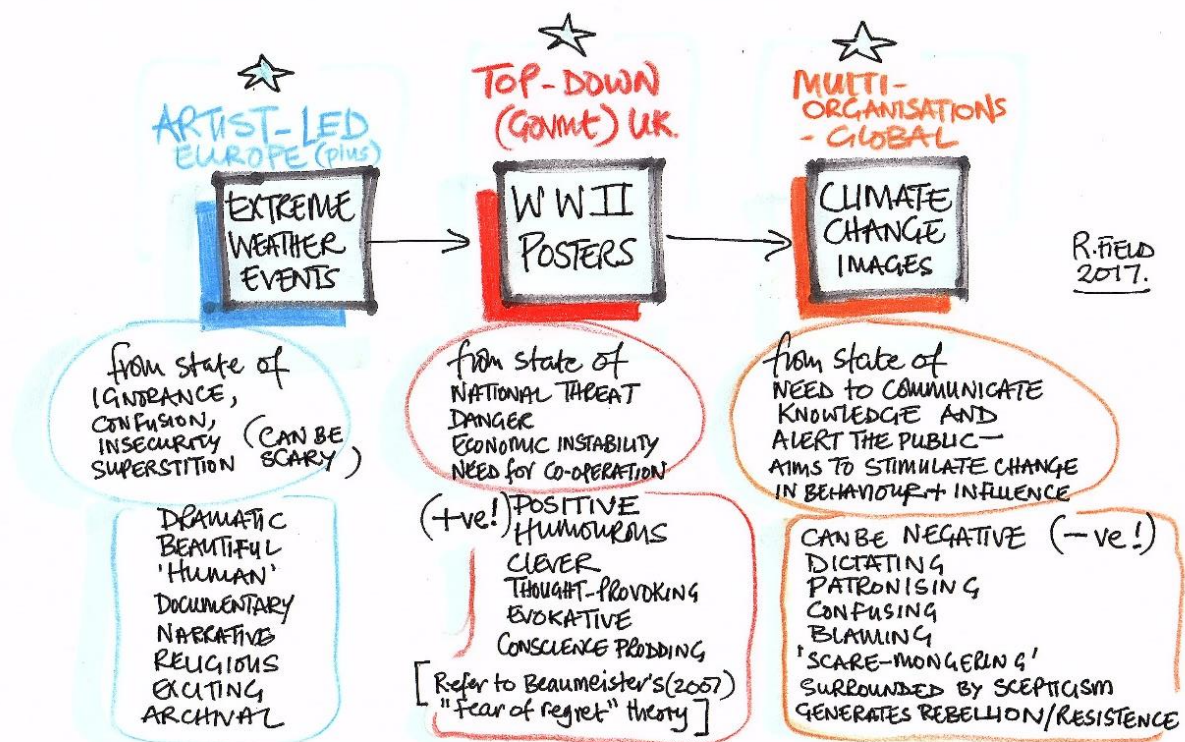 ARTIST-LED
EUROPE (plus)
EXTREME
WEATHER
EVENTS
from state of
IGNORANCE,
CONFUSION,
INSECURITY (CAN BE
SUPERSTITION SCARY)
DRAMATIC
BEAUTIFUL
'HUMAN'
DOCUMENTARY
NARRATIVE
RELIGIOUS
EXCITING
ARCHIVAL
TOP-DOWN
(GOVMT) UK.
WWII
POSTERS
from state of
NATIONAL THREAT
DANGER
ECONOMIC INSTABILITY
NEED FOR CO-OPERATION
(+ve!) POSITIVE
HUMOUROUS
CLEVER
THOUGHT-PROVOKING
EVOKATIVE
CONSCIENCE PRODDING
[Refer to Beaumeister's (2007)
"fear of regret" theory]
MULTI-
ORGANISATIONS
- GLOBAL
CLIMATE
CHANGE
IMAGES
from state of
NEED TO COMMUNICATE
KNOWLEDGE AND
ALERT THE PUBLIC—
AIMS TO STIMULATE CHANGE
IN BEHAVIOUR + INFLUENCE
CAN BE NEGATIVE (-ve!)
DICTATING
PATRONISING
CONFUSING
BLAMING
'SCARE-MONGERING'
SURROUNDED BY SCEPTICISM
GENERATES REBELLION/RESISTENCE
R.FIELD
2017.